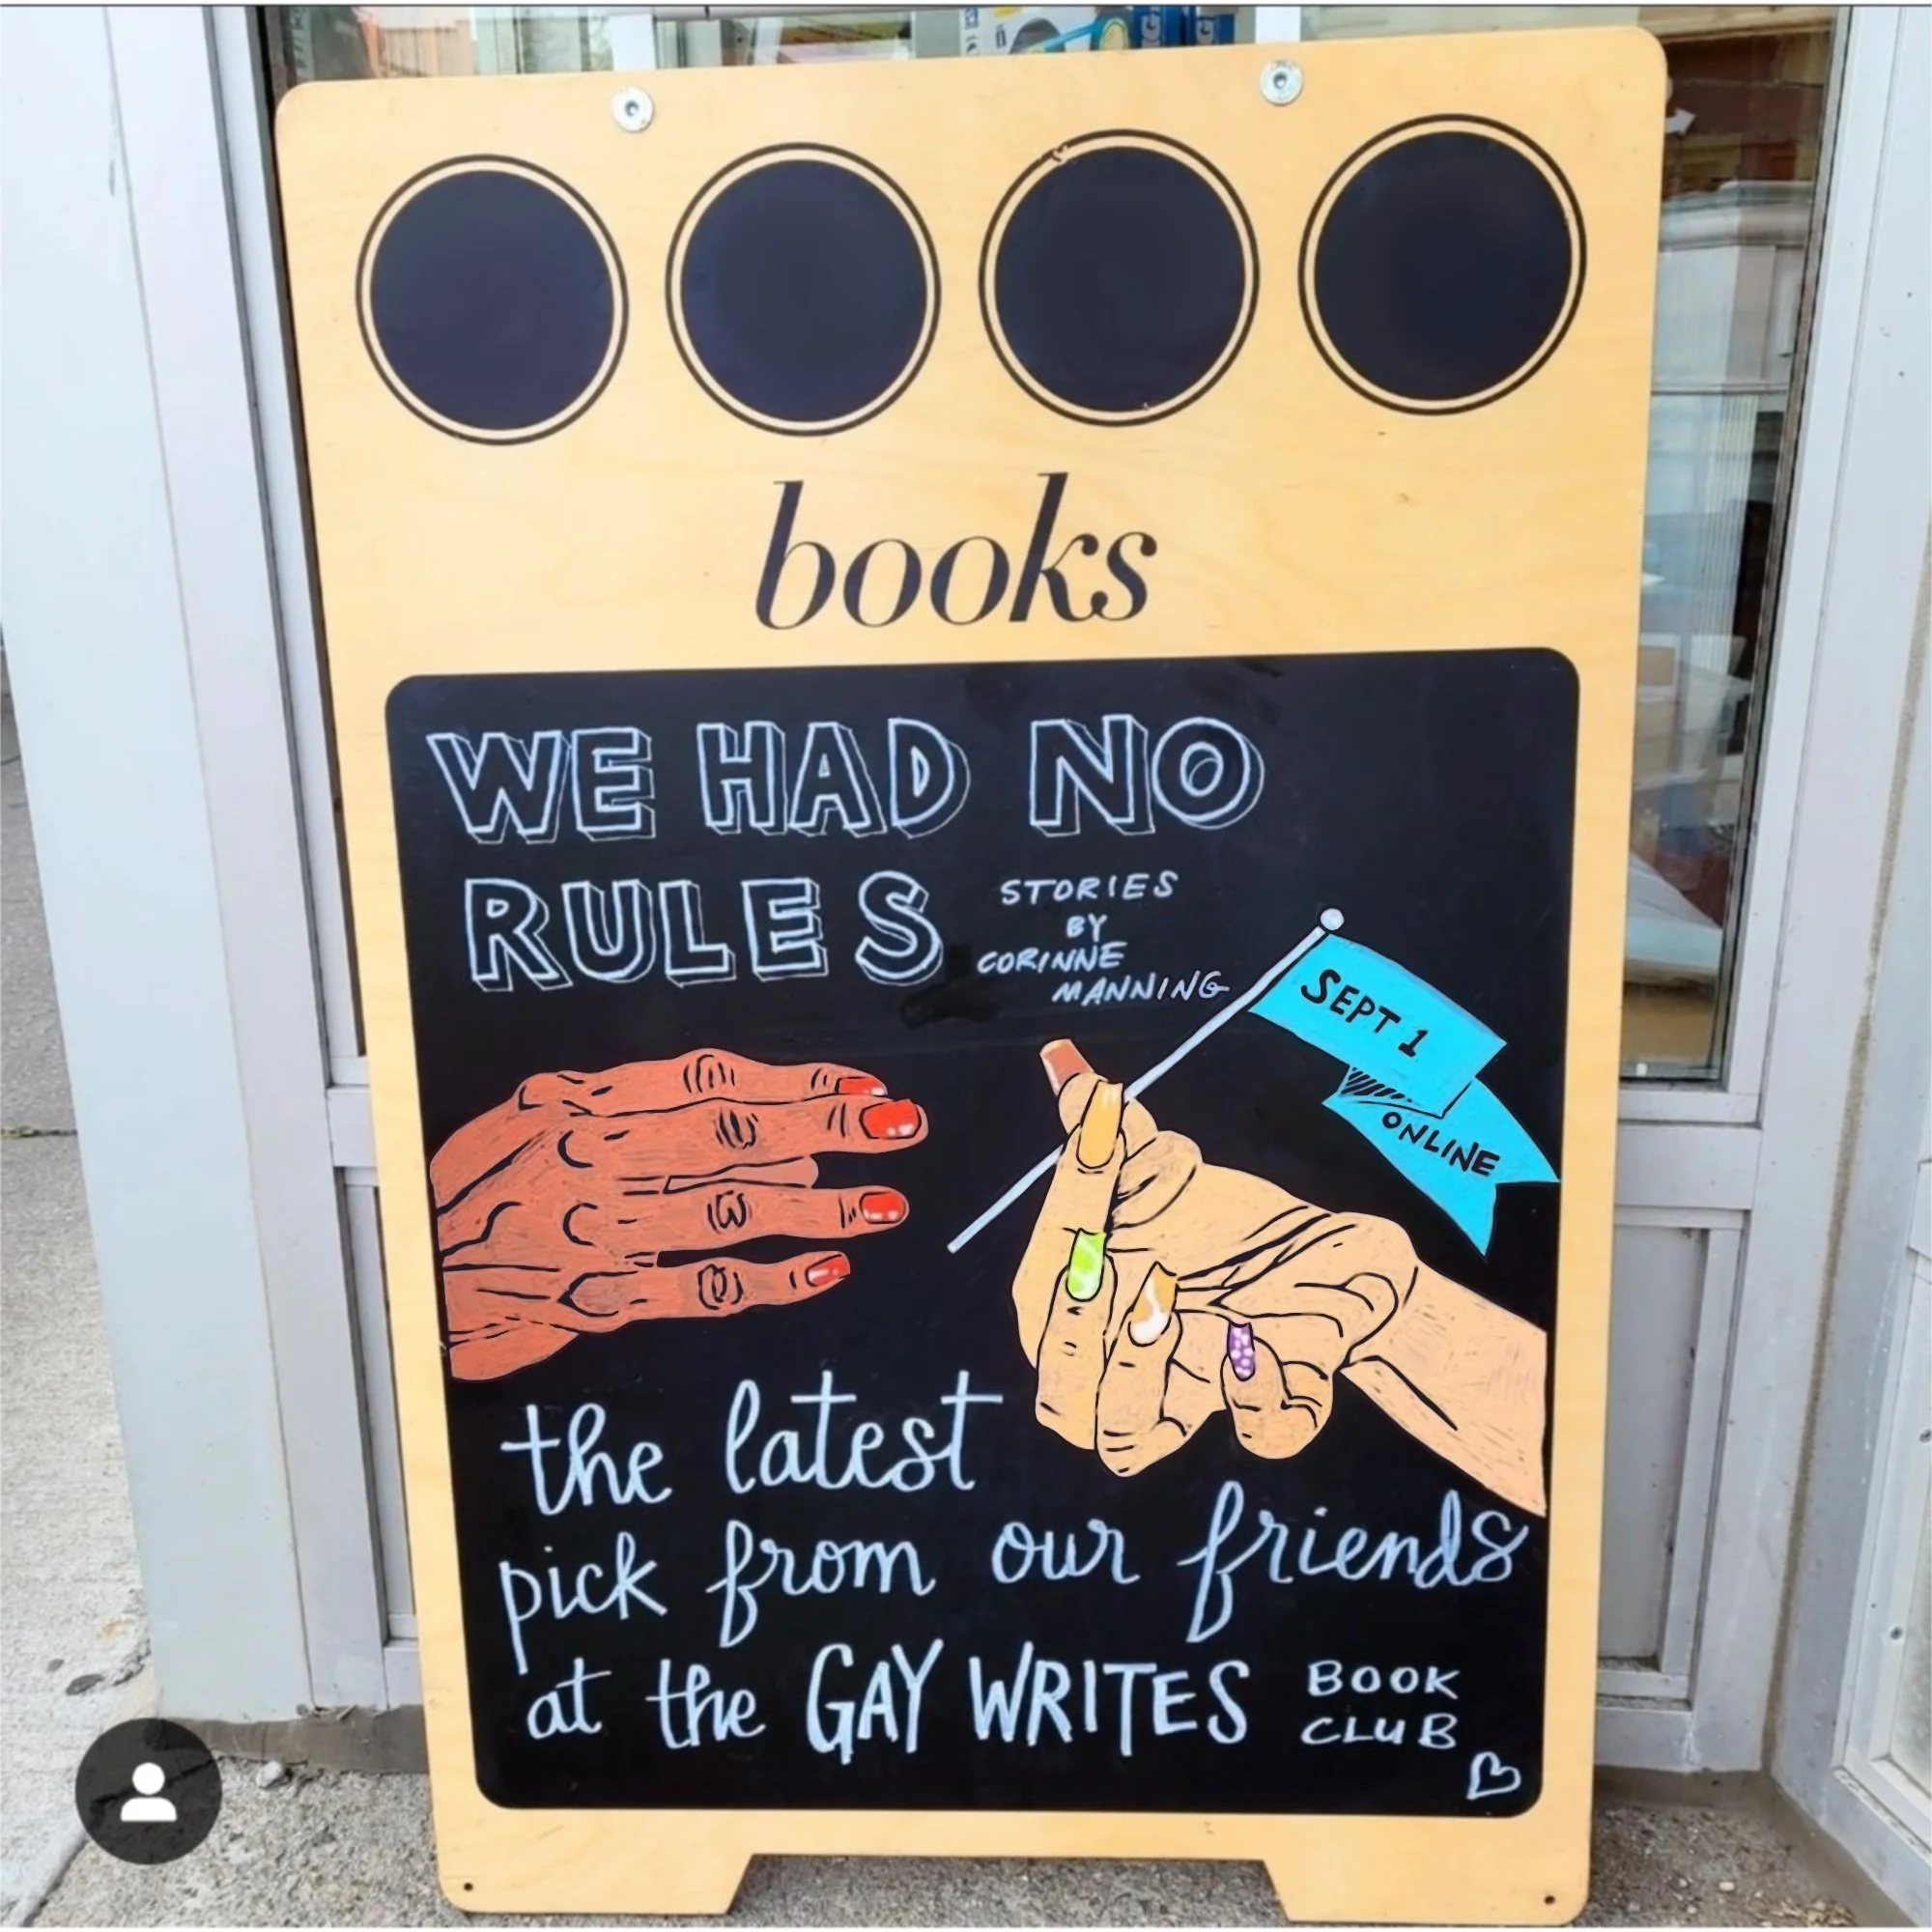 books
WE HAD NO
RULES
STORIES
BY
CORINNE
MANNING
SEPT 1
ONLINE
the latest
pick from our friends
at the GAY WRITES
BOOK
CLUB